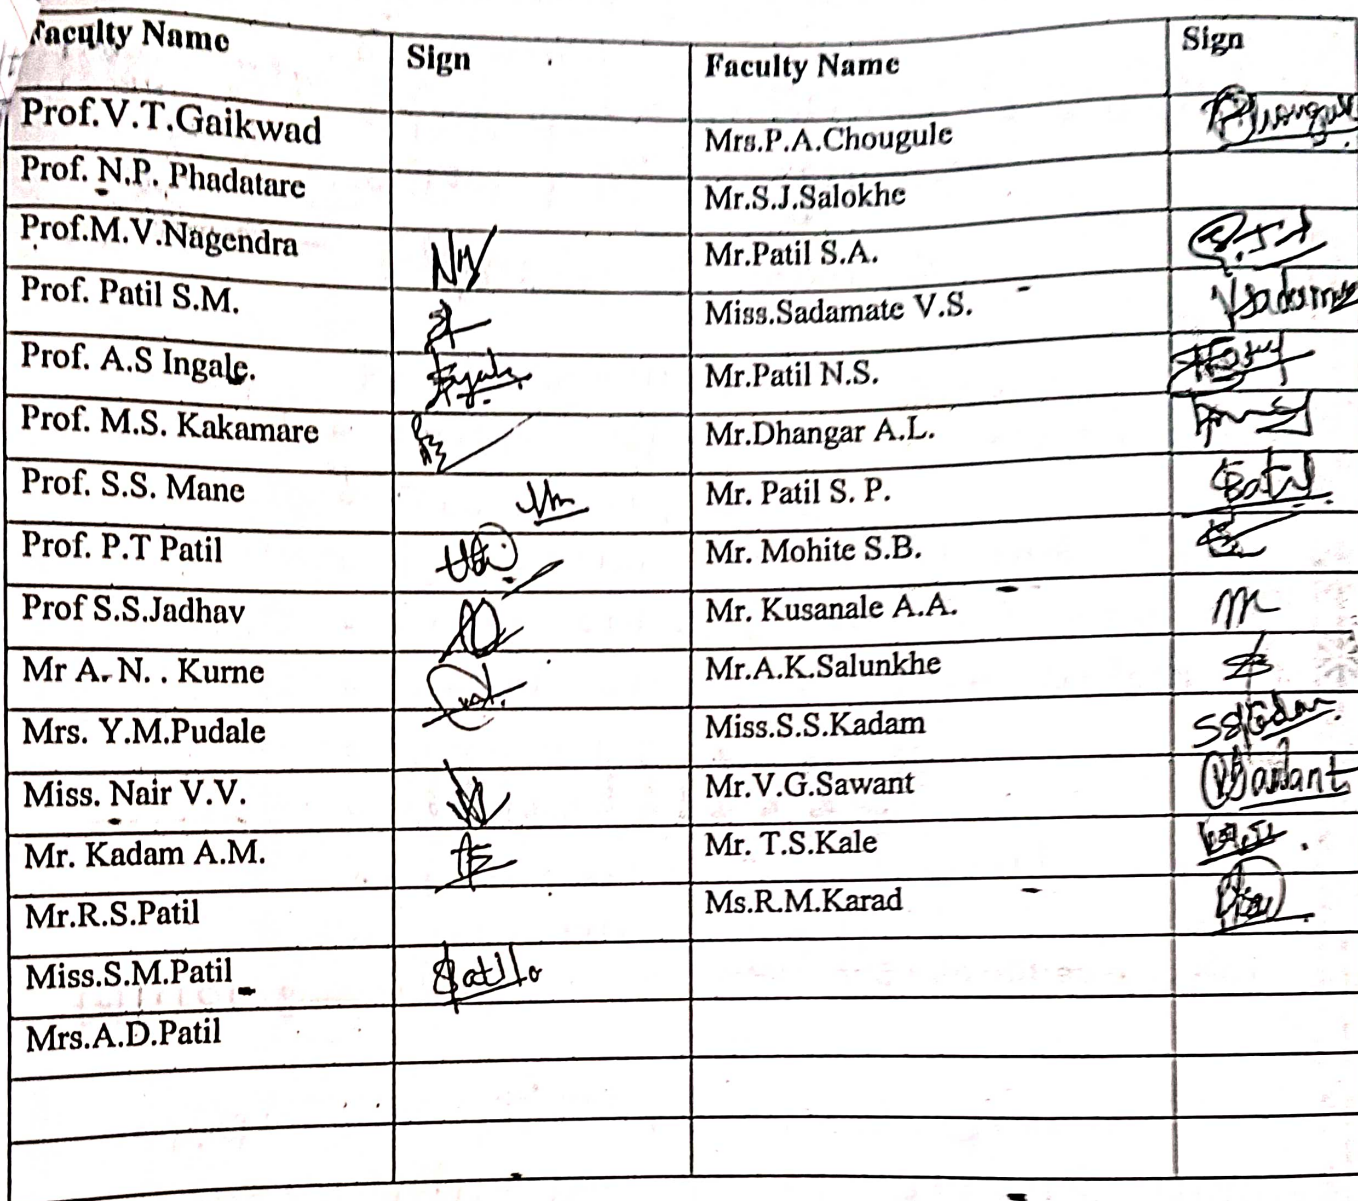 Faculty Name Sign Faculty Name Sign
Prof.V.T.Gaikwad Mrs.P.A.Chougule
Prof. N.P. Phadatare Mr.S.J.Salokhe
Prof.M.V.Nagendra Mr.Patil S.A.
Prof. Patil S.M. Miss.Sadamate V.S.
Prof. A.S Ingale. Mr.Patil N.S.
Prof. M.S. Kakamare Mr.Dhangar A.L.
Prof. S.S. Mane Mr. Patil S. P.
Prof. P.T Patil Mr. Mohite S.B.
Prof S.S.Jadhav Mr. Kusanale A.A.
Mr A. N. . Kurne Mr.A.K.Salunkhe
Mrs. Y.M.Pudale Miss.S.S.Kadam
Miss. Nair V.V. Mr.V.G.Sawant
Mr. Kadam A.M. Mr. T.S.Kale
Mr.R.S.Patil Ms.R.M.Karad
Miss.S.M.Patil
Mrs.A.D.Patil